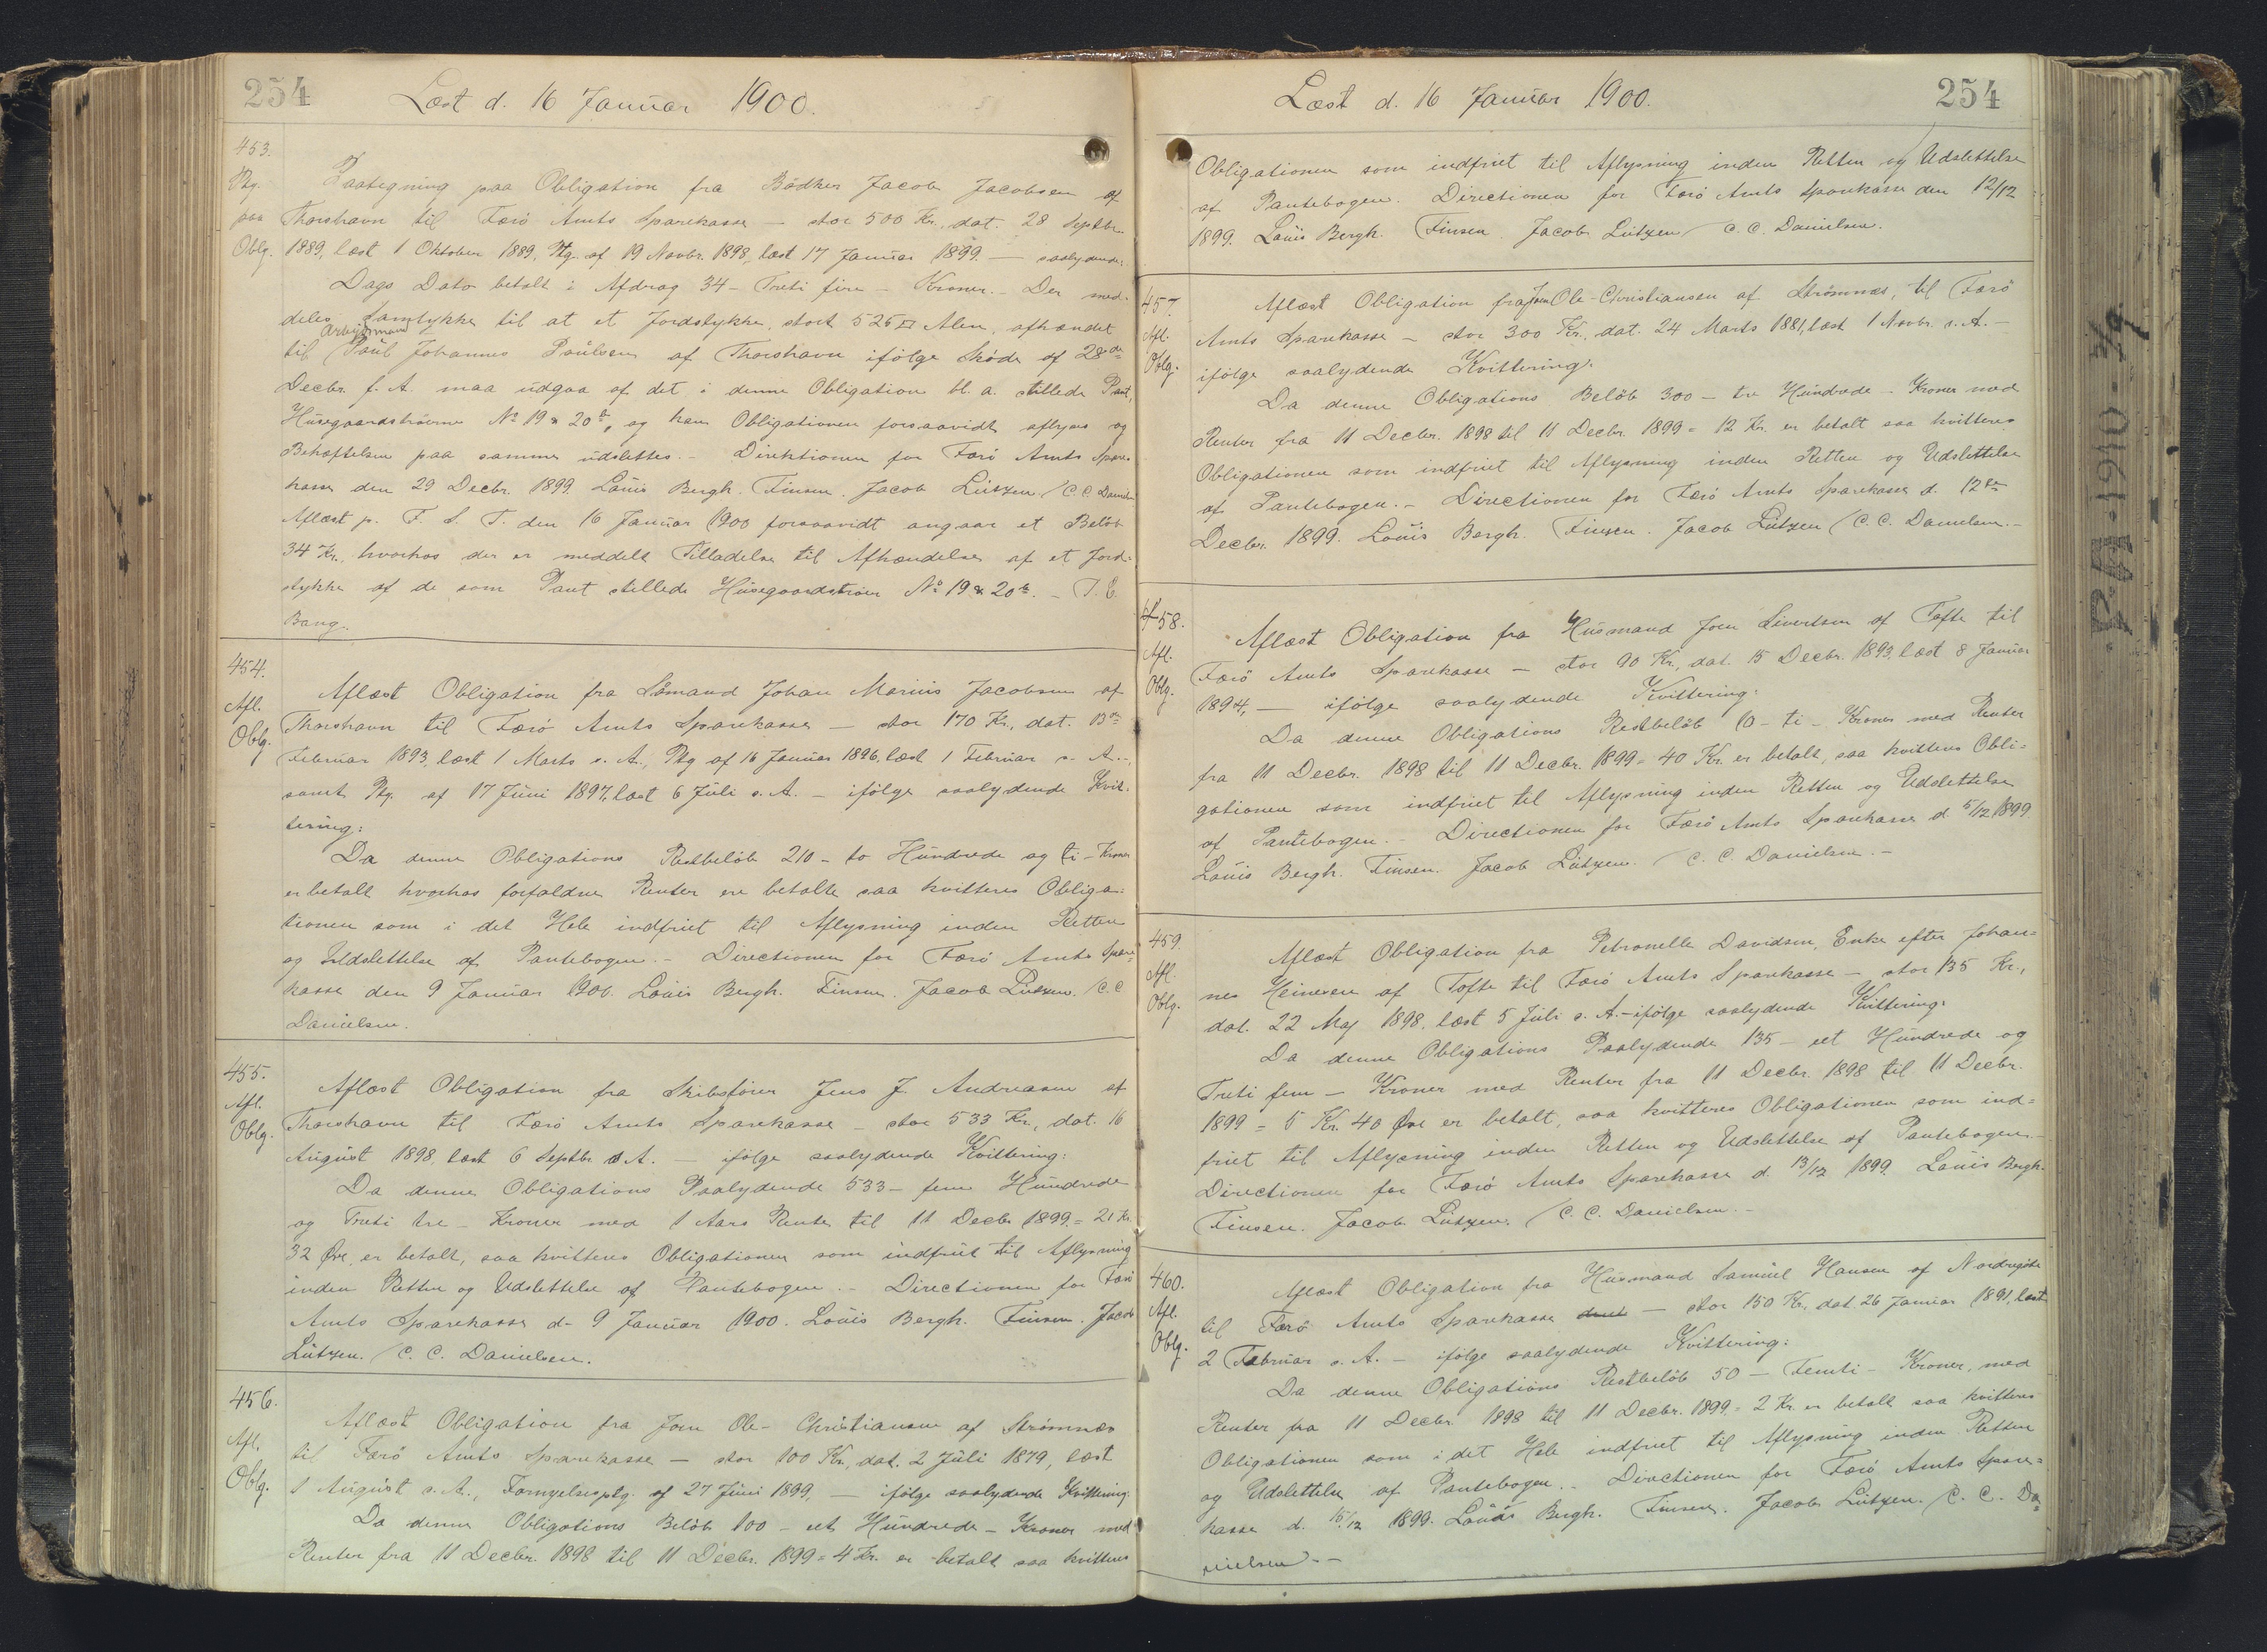 254
Læst d. 16 Januar 1900.
453.
Ptg.
paa
Oblg.
Paategning paa Obligation fra Bödker Jacob Jacobsen af
Thorshavn til Færö Amts Sparekasse — stor 500 Kr., dat. 28 Septbr.
1889, læst 1 Oktober 1889, Ptg. af 19 Novbr. 1898, læst 17 Januar 1899. — saalydende:
Dags Dato betalt i Afdrag 34 - Treti fire - Kroner. - Der med-
deles Samtykke til at et Jordstykke, stort 525 □ Alen, afhændet
Arbejdsmand
til Poul Johannes Poulsen af Thorshavn ifölge Sköde af 28de
Decbr. f. A. maa udgaa af det i denne Obligation bl. a. stillede Pant,
Husegaardströerne No 19 & 20b, og kan Obligationen forsaavidt aflyses og
Behæftelsen paa samme udslettes. - Direktionen for Færö Amts Spare-
kasse den 29 Decbr. 1899. Louis Bergh. Finsen. Jacob Lützen / C. C. Danielsen
Aflæst p. F. S. T. den 16 Januar 1900 forsaavidt angaar et Belöb
34 Kr., hvorhos der er meddelt Tilladelse til Afhændelse af et Jord-
stykke af de som Pant stillede Husegaardströer No 19 & 20b. - T. C.
Bang.
454.
Afl.
Oblg.
Aflæst Obligation fra Sömand Johan Marius Jacobsen af
Thorshavn til Færö Amts Sparekasse — stor 170 Kr., dat. 13de
Februar 1893, læst 1 Marts s. A., Ptg af 16 Januar 1896, læst 1 Februar s. A.,
samt Ptg. af 17 Juni 1897, læst 6 Juli s. A. - ifölge saalydende Kvit-
tering:
Da denne Obligations Restbelöb 210 - to Hundrede og ti - Kroner
er betalt hvorhos forfaldne Renter ere betalte saa kvitteres Obliga-
tionen som i det Hele indfriet til Aflysning inden Retten
og Udslettelse af Pantebogen. - Directionen for Færö Amts Spare-
kasse den 9 Januar 1900. Louis Bergh. Finsen. Jacob Lützen. / C. C
Danielsen.
455.
Afl.
Oblg.
Aflæst Obligation fra Skibsförer Jens J. Andreasen af
Thorshavn til Færö Amts Sparekasse - stor 533 Kr., dat. 16
August 1898, læst 6 Septbr s. A. — ifölge saalydende Kvittering:
Da denne Obligations Paalydende 533 - fem Hundrede
og Treti tre - Kroner med 1 Aars Rente til 11 Decbr 1899 = 21 Kr.
32 Øre, er betalt, saa kvitteres Obligationen som indfriet til Aflysning
inden Retten og Udslettelse af Pantebogen. - Directionen for Færö
Amts Sparekasse d. 9 Januar 1900. Louis Bergh. Finsen. Jacob
Lützen. / C. C. Danielsen.
456.
Afl.
Oblg.
Aflæst Obligation fra Joen Ole- Christiansen af Strömnæs
til Færö Amts Sparekasse — stor 100 Kr., dat. 2 Juli 1879, læst
1 August s. A., Fornyelsesptg. af 27 Juni 1899, — ifölge saalydende Kvittering:
Da denne Obligations Belöb 100 - et Hundrede - Kroner med
Renter fra 11 Decbr. 1898 til 11 Decbr. 1899 = 4 Kr. er betalt saa kvitteres
Læst d. 16 Januar 1900.
254
Obligationen som indfriet til Aflysning inden Retten og Udslettelse
af Pantebogen. Directionen for Færö Amts Sparekasse den 12/12
1899. Louis Bergh. Finsen. Jacob Lützen / C. C. Danielsen.
457.
Afl.
Oblg.
Aflæst Obligation fra Joen Ole-Christiansen af Strömnæs, til Færö
Amts Sparekasse — stor 300 Kr., dat. 24 Marts 1881, læst 1 Novbr. s. A. -
ifölge saalydende Kvittering:
Da denne Obligations Belöb 300 - tre Hundrede - Kroner med
Renter fra 11 Decbr. 1898 til 11 Decbr. 1899 = 12 Kr. er betalt saa kvitteres
Obligationen som indfriet til Aflysning inden Retten og Udslettelse
af Pantebogen. - Directionen for Færö Amts Sparekasse d. 12te
Decbr. 1899. Louis Bergh. Finsen. Jacob Lützen / C. C. Danielsen. -
458.
Afl.
Oblg.
Aflæst Obligation fra Husmand Joen Sivertsen af Tofte til
Færö Amts Sparekasse — stor 90 Kr., dat. 15 Decbr. 1893, læst 8 Januar
1894, — ifölge saalydende Kvittering:
Da denne Obligations Restbelöb 10 - ti - Kroner med Renter
fra 11 Decbr. 1898 til 11 Decbr. 1899 = 40 Kr. er betalt, saa kvitteres Obli=
gationen som indfriet til Aflysning inden Retten og Udslettelse
af Pantebogen. - Directionen for Færö Amts Sparekasse d. 15/12 1899.
Louis Bergh. Finsen. Jacob Lützen. / C. C. Danielsen. -
459.
Afl.
Oblg.
Aflæst Obligation fra Petronelle Davidsen, Enke efter Johan=
nes Heinesen af Tofte til Færö Amts Sparekasse — stor 135 Kr.,
dat. 22 Maj 1898, læst 5 Juli s. A. - ifölge saalydende Kvittering:
Da denne Obligations Paalydende 135 - et Hundrede og
Treti fem - Kroner med Renter fra 11 Decbr. 1898 til 11 Decbr.
1899 = 5 Kr. 40 Øre er betalt, saa kvitteres Obligationen som ind=
friet til Aflysning inden Retten og Udslettelse af Pantebogen. -
Directionen for Færö Amts Sparekasse d. 13/12 1899. Louis Bergh.
Finsen. Jacob Lützen. / C. C. Danielsen. -
460.
Afl.
Oblg.
Aflæst Obligation fra Husmand Samuel Hansen af Nordregöte
til Færö Amts Sparekasse — stor 150 Kr., dat. 26 Januar 1891, læst
2 Februar s. A. - ifölge saalydende Kvittering:
Da denne Obligations Restbelöb 50 - Femti - Kroner, med
Renter fra 11 Decbr. 1898 til 11 Decbr. 1899 = 2 Kr. er betalt saa kvitteres
Obligationen som i det Hele indfriet til Aflysning inden Retten
og Udslettelse af Pantebogen. - Directionen for Færö Amts Spare=
kasse d. 15/12 1899. Louis Bergh. Finsen. Jacob Lützen. / C. C. Da=
nielsen. -